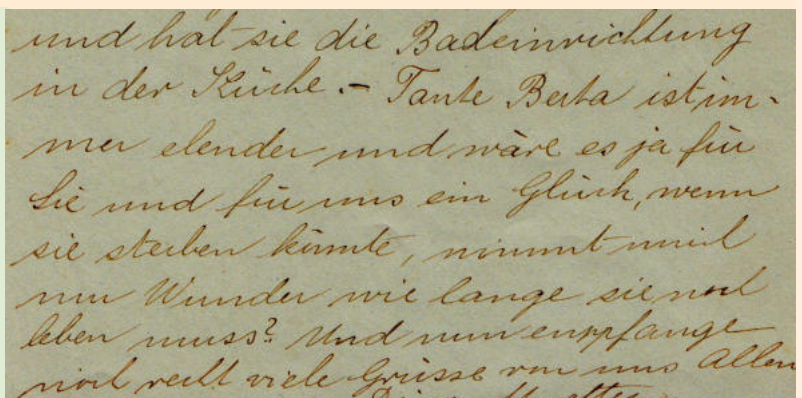 und hat sie die Badeinrichtung
in der Küche. – Tante Berta ist im-
mer elender und wäre es ja für
Sie und für uns ein Glück, wenn
sie sterben könnte, nimmt mich
nur Wunder wie lange sie noch
leben muss? Und nun empfange
noch recht viele Grüsse von uns Allen